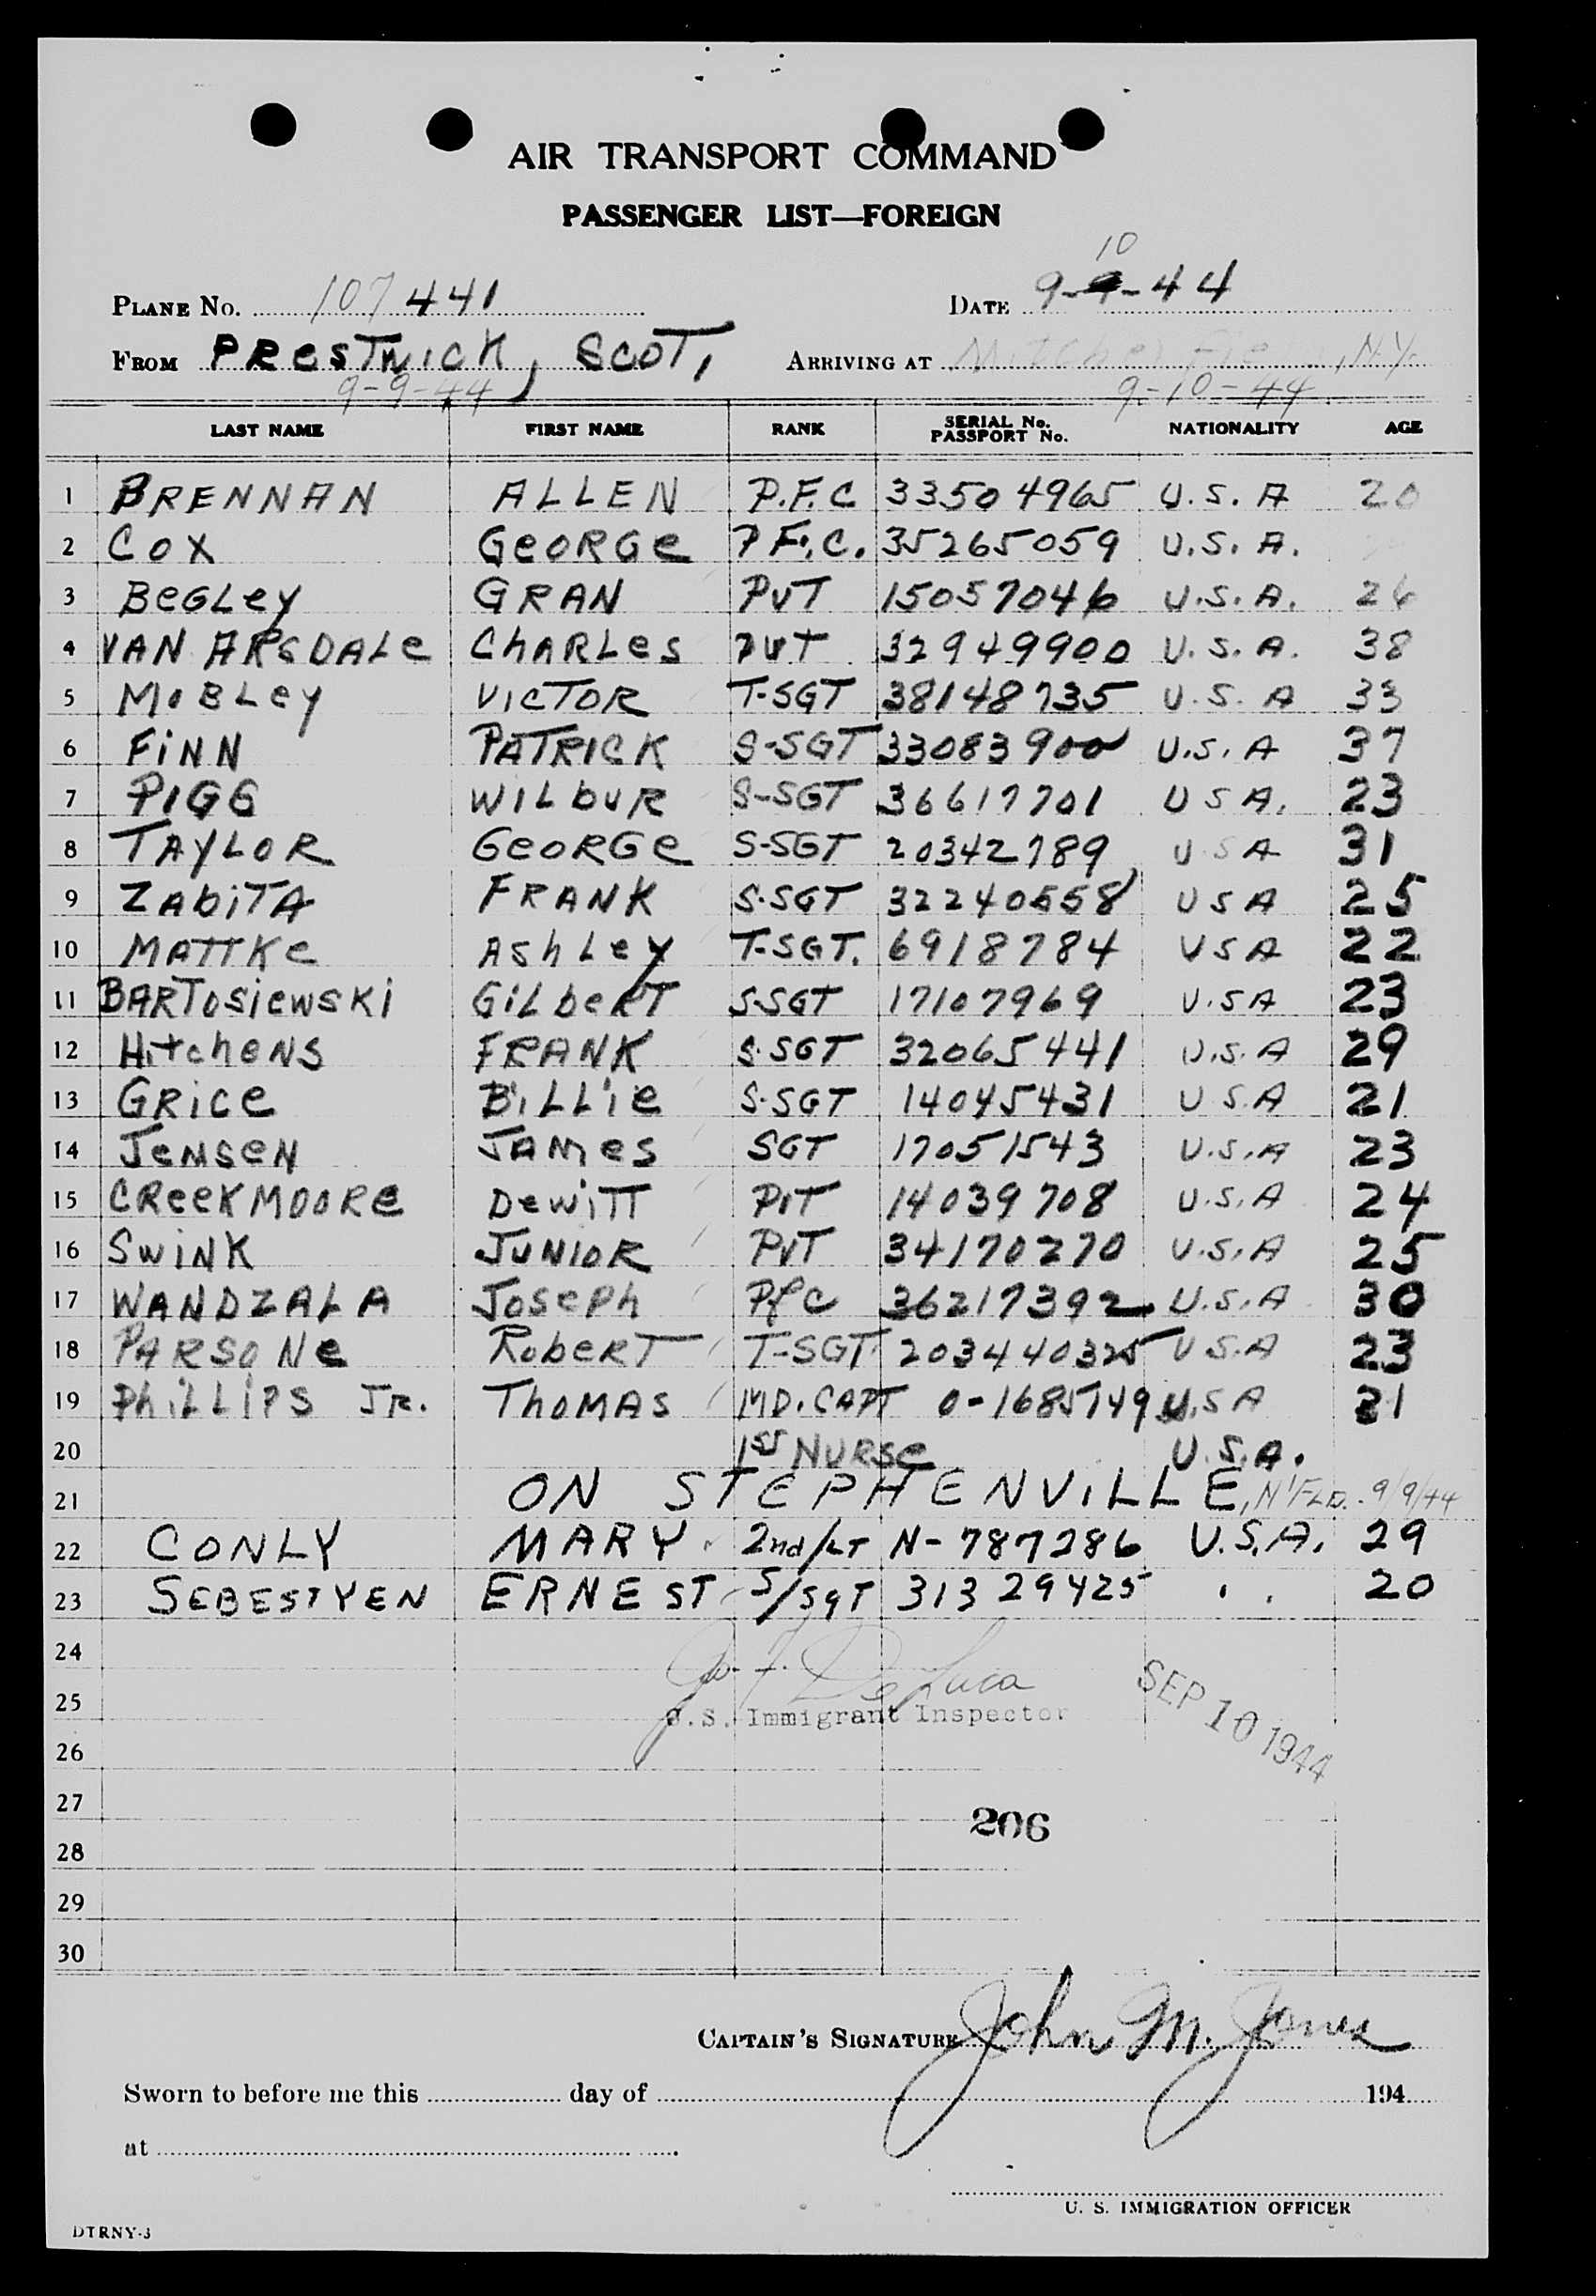 AIR TRANSPORT COMMAND
PASSENGER LIST—FOREIGN
10
PLANE No. 107441 DATE 9-9-44
FROM PRESTWICK, SCOT, ARRIVING AT Mitchel Field, N.Y.
9-9-44 9-10-44
LAST NAME FIRST NAME RANK SERIAL No. PASSPORT No. NATIONALITY AGE
1 BRENNAN ALLEN P.F.C 33504965 U.S.A 20
2 COX GeORGe P.F.C. 35265059 U.S.A.
3 BeGLey GRAN PVT 15057046 U.S.A. 26
4 VAN ARSDALe ChARLes PVT 32949900 U.S.A. 38
5 MoBLey VICTOR T-SGT 38148735 U.S.A 33
6 FiNN PATRICK S-SGT 33083900 U.S.A 37
7 PIGG WILbUR S-SGT 36617701 U S A. 23
8 TAYLOR GeORGe S-SGT 20342789 U S A 31
9 ZAbiTA FRANK S.SGT 32240558 U S A 25
10 MATTKe AShLey T-SGT. 6918784 U S A 22
11 BARTOSiewSKi GiLbeRT S-SGT 17107969 U.S A 23
12 HitcheNS FRANK S.SGT 32065441 U.S.A 29
13 GRice BiLLie S.SGT 14045431 U S.A 21
14 JeNSeN JAMes SGT 17051543 U.S.A 23
15 CReeKMOORe DeWiTT PVT 14039708 U.S.A 24
16 SWiNK JUNIOR PVT 34170270 U.S.A 25
17 WANDZALA JosePh Pfc 36217392 U.S.A 30
18 PARSONe RobeRT T-SGT 203440325 U S.A 23
19 PhiLLiPS JR. ThOMAS MD. CAPT O-1685749 U.S A 31
20 1ST NURSe U.S.A.
21 ON STEPHENVILLE, N'FLD. 9/9/44
22 CONLY MARY 2nd/LT N-787286 U.S.A. 29
23 SEBESTYEN ERNEST S/SGT 31329425 . . 20
24
De Luca
25 U.S. Immigrant Inspector SEP 10 1944
26
27 206
28
29
30
CAPTAIN'S SIGNATURE John M. Jones
Sworn to before me this day of 194
at
U. S. IMMIGRATION OFFICER
DTRNY-3